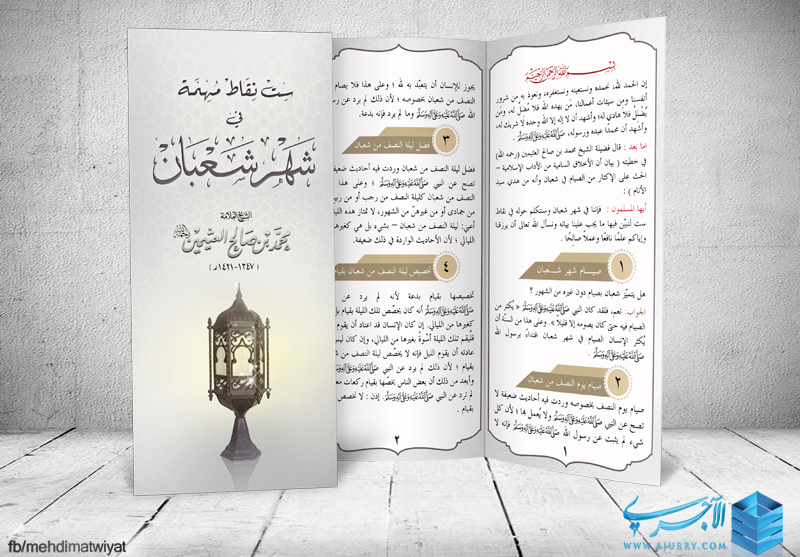 ست نقاط مهمة
في
شهر شعبان
الشيخ العلامة
محمد بن صالح العثيمين
(١٣٤٧-١٤٢١هـ)
بسم الله الرحمن الرحيم
إن الحمد لله، نحمده ونستعينه ونستغفره، ونعوذ به من شرور
أنفسنا ومن سيئات أعمالنا، مَن يهده الله فلا مُضلَّ له، ومَن
يُضْلِلْ فلا هادي له؛ وأشهد أن لا إله إلا الله وحده لا شريك له،
وأشهد أن محمدًا عبده ورسوله، ﷺ.
اما بعد : قال فضيلة الشيخ محمد بن صالح العثيمين (رحمه الله)
في خطبته ( بيان أن الأخلاق السامية من الآداب الإسلامية –
الحث على الإكثار من الصيام في شعبان وأنه من هدي سيد
الأنام ) :
أيها المسلمون : فإننا في شهر شعبان وسنتكلم حوله في نقاط
ست لنبيِّن فيها ما يجب علينا بيانه ونسأل الله تعالى أن يرزقنا
وإياكم علمًا نافعًا وعملاً صالحًا .
١ صيـــام شهر شـــعبان
هل يتميَّز شعبان بصيام دون غيره من الشهور ؟
الجواب: نعم فلقد كان النبي ﷺ « يُكثر من
الصيام فيه حتى كان يصومه إلا قليلاً »، وعلى هذا من السنَّة أن
يُكثر الإنسان الصيام في شهر شعبان اقتداءً برسول الله
ﷺ .
٢ صيام يوم النصف من شعبان
صيام يوم النصف بخصوصه وردت فيه أحاديث ضعيفة لا
تصح عن النبي ﷺ ولا يُعمل بها ؛ لأن كل
شيء لم يثبت عن رسول الله ﷺ فإنه لا
١
يجوز للإنسان أن يتعبَّد به لله ؛ وعلى هذا فلا يصام
النصف من شعبان بخصوصه ؛ لأن ذلك لم يرد عن رسول
الله ﷺ وما لم يرد فإنه بدعة.
٣ فضل ليلة النصف من شعبان
فضل ليلة النصف من شعبان وردت فيه أحاديث ضعيفة
تصح عن النبي ﷺ ؛ وعلى هذا
النصف من شعبان كليلة النصف من رجب أو من ربيع
من جمادى أو من غيرهنَّ من الشهور، لا تمتاز هذه الليلة
أعني: ليلة النصف من شعبان – بشيء بل هي كغيرها
الليالي ؛ لأن الأحاديث الواردة في ذلك ضعيفة.
٤ تخصيص ليلة النصف من شعبان بقيام
تخصيصها بقيام بدعة لأنه لم يرد عن
ﷺ أنه كان يخصّص تلك الليلة بقيام بل
كغيرها من الليالي. إن كان الإنسان قد اعتاد أن يقوم
فليقم تلك الليلة أسوةً بغيرها من الليالي، وإن كان ليس
عادته أن يقوم الليل فإنه لا يخصّص ليلة النصف من
بقيام ؛ لأن ذلك لم يرد عن النبي ﷺ
وأبعد من ذلك أن بعض الناس يخصّها بقيام ركعات معدودة
لم ترد عن النبي ﷺ. إذن : لا تخصّص
بقيام .
٢
fb/mehdimatwiyat
الآجري
WWW.AJURRY.COM